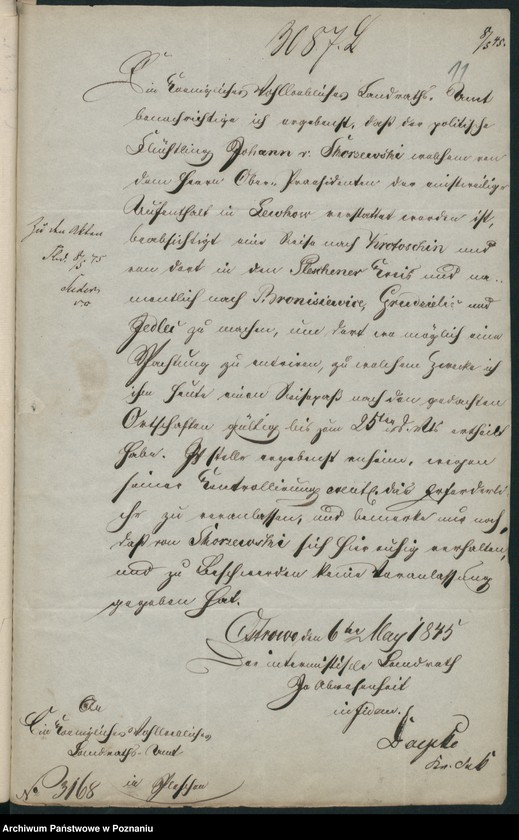 3087. L
8/5 45.
11
Ein Koenigliches Wohlloebliches Landraths-Amt
benachrichtige ich ergebenst, daß der politische
Flüchtling Johann v. Skorzewski welchem von
dem Herrn Ober-Praesidenten der einstweilige
Aufenthalt in Lewkow verstattet worden ist,
beabsichtigt eine Reise nach Krotoschin und
von dort in den Pleschener Kreis und na-
mentlich nach Broniszewice, und
Jedlec zu machen, um dort wo möglich eine
Pachtung zu entriren, zu welchem Zwecke ich
ihm heute einen Reisepaß nach den gedachten
Ortschaften gültig bis zum 25ten d. Mts ertheilt
habe. Ich stelle ergebenst anheim, wegen
seiner Kontrollirung event. das Erforderli-
che zu veranlassen, und bemerke nur noch,
daß von Skorzewski sich hier ruhig verhalten,
und zu Beschwerden keine Veranlassung
gegeben hat.
Zu den Akten
Ostrowo, den 6ten May 1845
Der interimistische Landrath
In Abwesenheit
Kr. Sek
An
Ein Koenigliches Wohlloebliches
Landraths-Amt
in Pleschen
No 3168
Archiwum Państwowe w Poznaniu